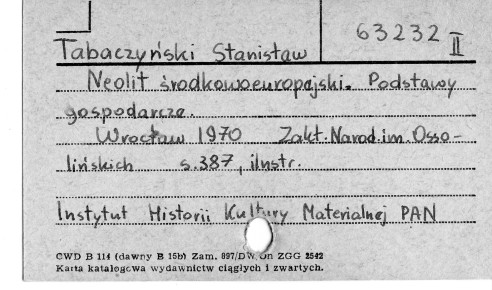 63232
II
Tabaczyński Stanisław
Neolit środkowoeuropejski. Podstawy
gospodarcze.
Wrocław 1970 Zakt. Narod. im. Osso-
lińskich s. 387, ilustr.
Instytut Historii Kultury Materialnej PAN
CWD B 114 (dawny B 15b) Zam. 897/DW/Dn ZGG 2542
Karta katalogowa wydawnictw ciągłych i zwartych.